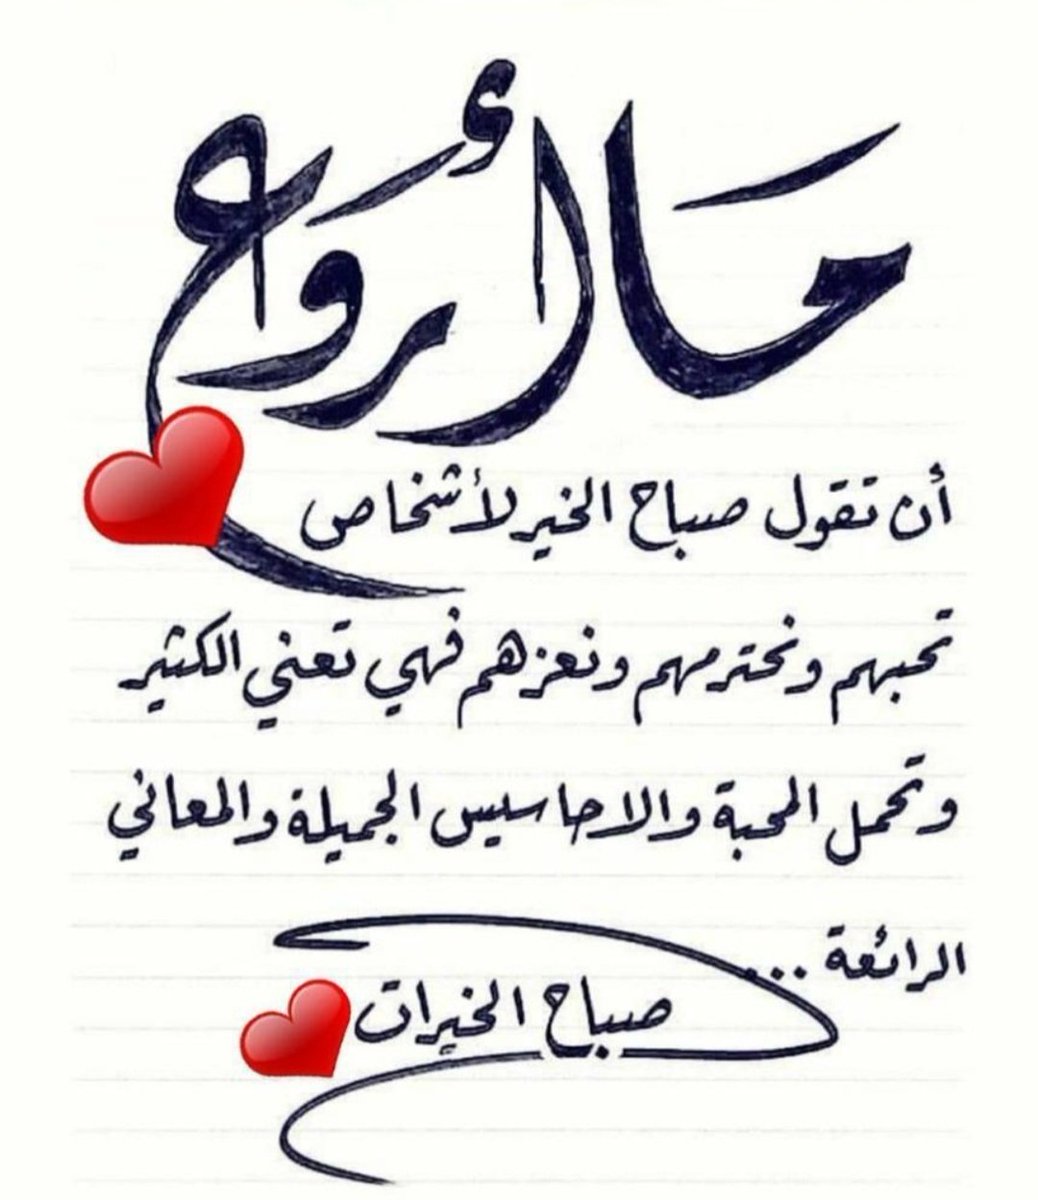 ما أروع
أن تقول صباح الخير لأشخاص
تحبهم ونحترمهم ونعزهم فهي تعني الكثير
وتحمل المحبة والاحاسيس الجميلة والمعاني
الرائعة ...
صباح الخيرات